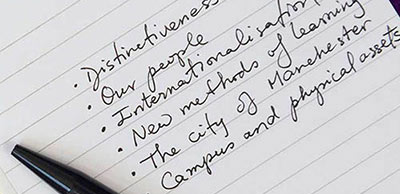 · Distinctiveness
· Our people
· Internationalisation
· New methods of learning
· The city of Manchester
Campus and physical assets